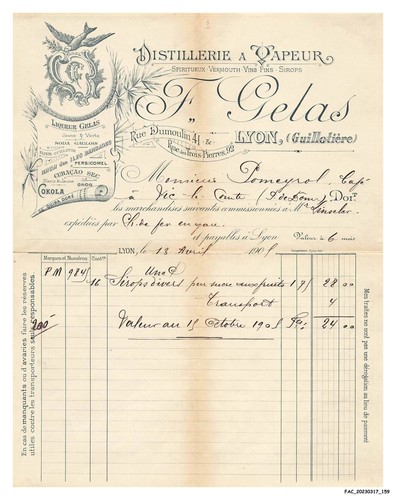 DISTILLERIE A VAPEUR
SPIRITUEUX·VERMOUTH·VINS FINS·SIROPS
Fçs Gelas
LIQUEUR GELAS
Jaune & Verte
Rue Dumoulin 41 &
Rue des Trois-Pierres, 92
LYON, (Guillotière)
PERSICOMEL
CURAÇAO SEC
KOKOLA
Monsieur Pomeyrol Café
à Vic-le-Comte (P.de Dome) Doit
les marchandises suivantes commissionnées à Mr
expédiées par Ch. de fer en gare
et payables à Lyon Valeur à 6 mois
LYON, le 13 Avril 190
Marques et Numéros
PM 984
16 Sirops divers pur sucre aux fruits 175 28 00
Transport 4
Valeur au 15 Octobre 190 24 00
En cas de manquants ou d'avaries faire les réserves
utiles contre les transporteurs seuls responsables.
Mes traites ne sont pas une dérogation au lieu de paiement
FAC_20230317_159